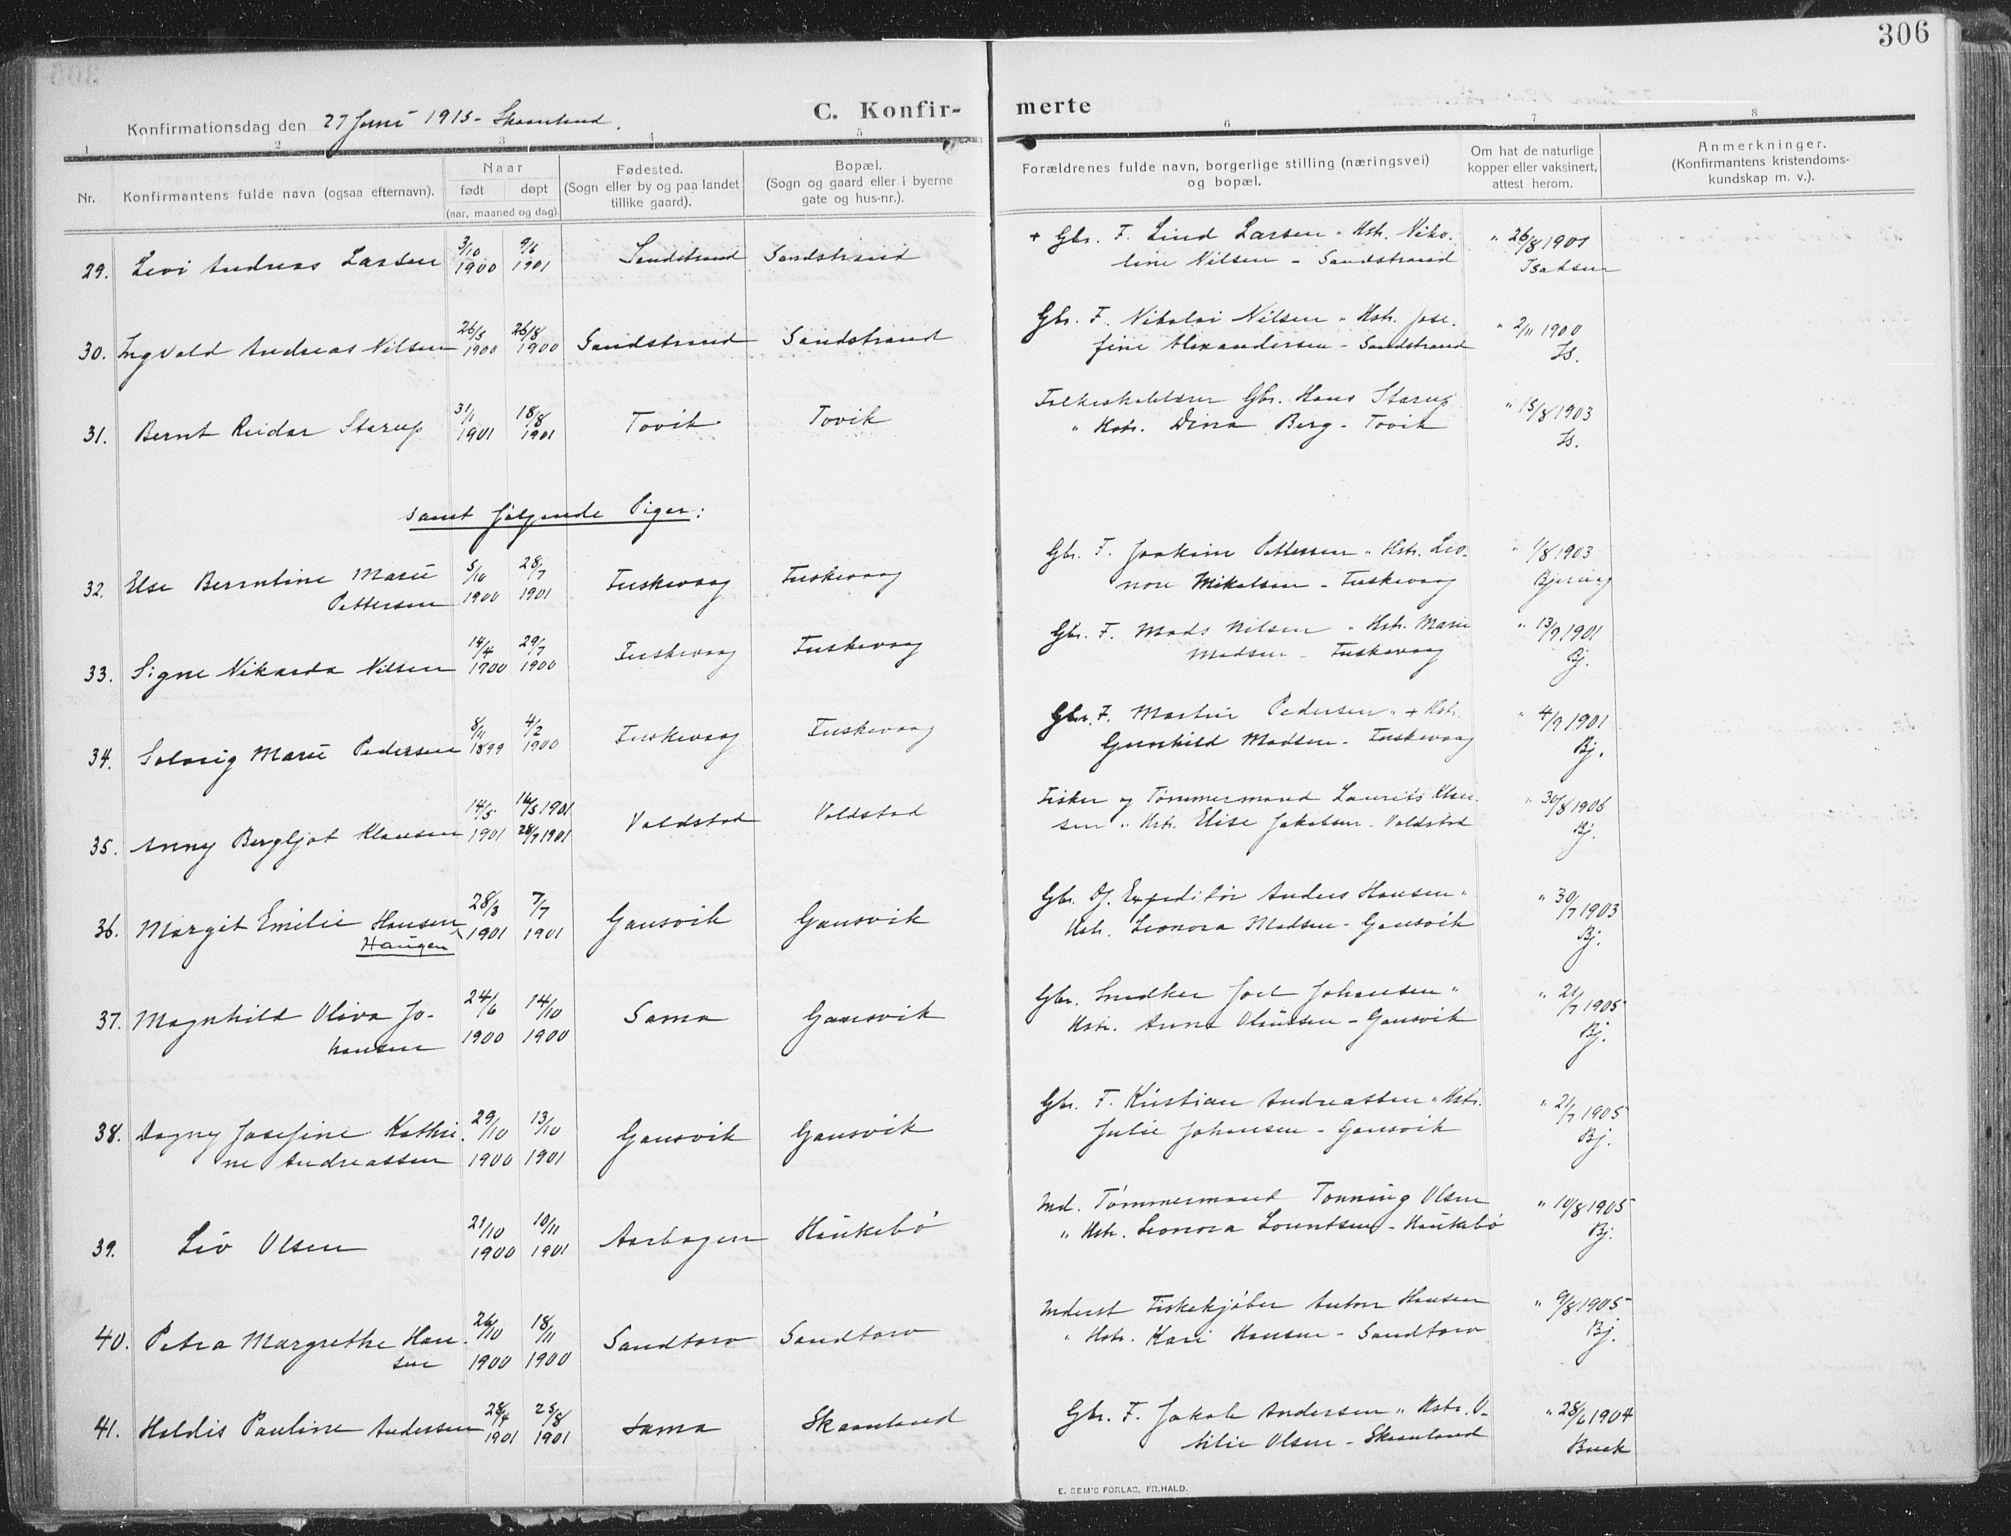 306
Konfirmationsdag den 27 Juni 1915 - Skaanland.
C. Konfir- merte
1 2 3 4 5 6 7 8
Nr.
Konfirmantens fulde navn (ogsaa efternavn).
Naar
født døpt
(aar, maaned og dag).
Fødested.
(Sogn eller by og paa landet
tillike gaard).
Bopæl.
(Sogn og gaard eller i byerne
gate og hus-nr.).
Forældrenes fulde navn, borgerlige stilling (næringsvei)
og bopæl.
Om hat de naturlige
kopper eller vaksinert,
attest herom.
Anmerkninger.
(Konfirmantens kristendoms-
kundskap m. v.).
29. Levi Andreas Larsen 3/10 1900 9/6 1901 Sandstrand Sandstrand + Gbr. F. Lind Larsen " Hstr. Niko-
line Nilsen - Sandstrand " 26/8 1901
Isaksen
30. Ingvald Andreas Nilsen 26/5 1900 26/8 1900 Sandstrand Sandstrand Gbr. F. Nikolai Nilsen " Hstr. Jose-
fine Alexandersen - Sandstrand " 2/11 1900
Is.
31. Bernt Reidar Starup 31/1 1901 18/8 1901 Tovik Tovik Folkeskolelærer Gbr. Hans Starup
" Hstr. Dina Berg - Tovik " 15/8 1903
Is.
samt følgende Piger:
32. Else Berntine Marie
Pettersen 5/10 1900 28/7 1901 Fuskevaag Fuskevaag Gbr. F. Joakim Pettersen " Hstr. Leo-
nore Mikalsen - Fuskevaag " 1/8 1903
Bjerving
33. Signe Nikarda Nilsen 14/4 1900 29/7 1900 Fuskevaag Fuskevaag Gbr. F. Mads Nilsen " Hstr. Marie
Madsen - Fuskevaag " 13/9 1901
Bj.
34. Solveig Marie Pedersen 8/11 1899 4/2 1900 Fuskevaag Fuskevaag Gbr. F. Martin Pedersen " + Hstr.
Gunhild Madsen - Fuskevaag " 4/9 1901
Bj.
35. Anny Bergljot Klausen 14/5 1901 16/5 1901 28/7 1901 Voldstad Voldstad Fisker og Tømmermand Laurits Klau-
sen " Hstr. Elise Jakobsen - Voldstad " 30/8 1906
Bj.
36. Margit Emilie Hansen
Haugen 28/3 1901 7/7 1901 Gausvik Gausvik Gbr. Of. Expeditør Anders Hansen "
Hstr. Leonora Madsen - Gausvik " 30/7 1903
Bj.
37. Magnhild Oliva Jo-
hansen 24/6 1900 14/10 1900 Sama Gausvik Gbr. Snedker Joel Johansen "
Hstr. Anna Olaussen - Gausvik " 21/7 1905
Bj.
38. Dagny Josefine Kathri-
ne Andreassen 29/10 1900 13/10 1901 Gausvik Gausvik Gbr. F. Kristian Andreassen " Hstr.
Julie Johansen - Gausvik " 21/7 1905
Bj.
39. Liv Olsen 21/10 1900 10/11 1901 Aarbogen Haukebø Ind. Tømmermand Tonning Olsen
" Hstr. Leonora Lorentsen - Haukebø " 10/8 1905
Bj.
40. Petra Margrethe Han-
sen 26/10 1900 18/11 1900 Sandtorv Sandtorv Inderst Fiskekjøber Anton Hansen
" Hstr. Kari Hansen - Sandtorv " 9/8 1905
Bj.
41. Haldis Pauline Andersen 28/4 1901 25/8 1901 Sama Skaanland Gbr. F. Jakob Andersen " Hstr. O-
tilie Olsen - Skaanland " 28/6 1904
Buck
E. SEM'S FORLAG, FR.HALD.